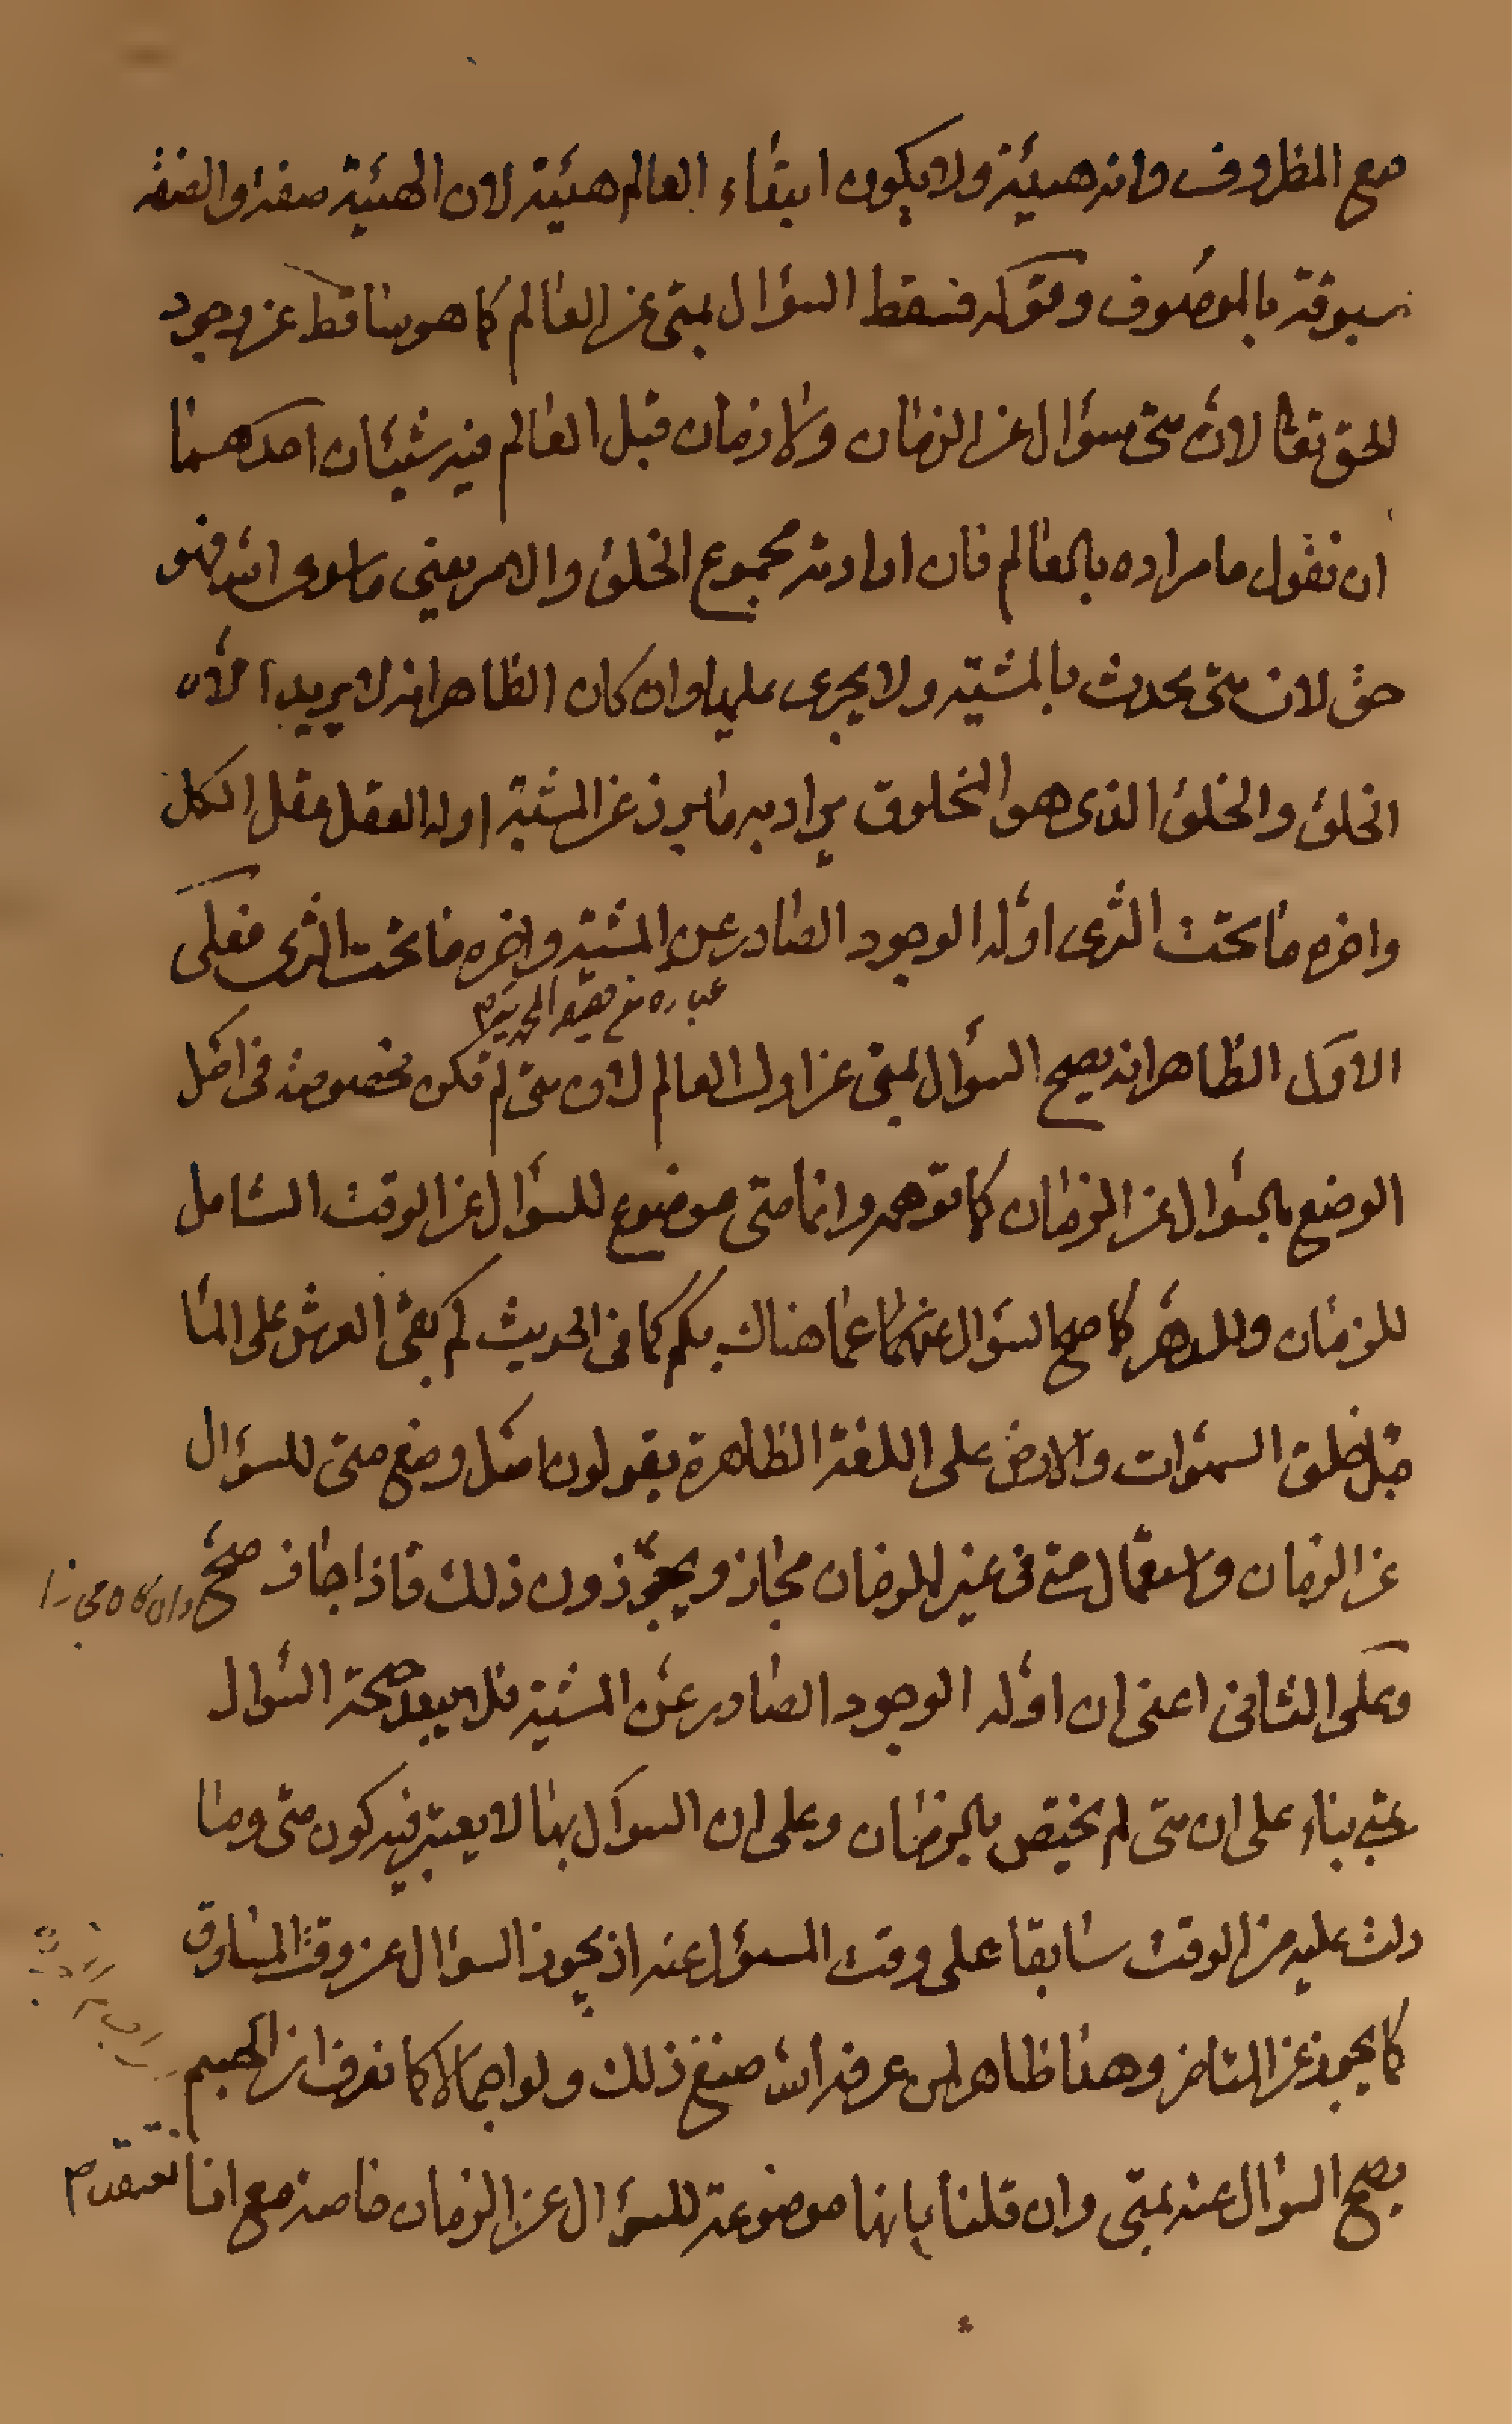 مع المظروف وانه هيئة ولا يكون ابتداء العالم هيئة لان الهيئة صفة والصفة
مسبوقة بالموصوف وقوله فسقط السؤال بمتى عن العالم كما هو ساقط عن وجود
الحق تعالى لان متى سؤال عن الزمان ولا زمان قبل العالم فيه شيئان احدهما
ان نقول ما مراده بالعالم فان اراد به مجموع الخلق والامر يعني ما سوى الله فهو
حق لان متى يحدث بالمشية ولا يجرى عليها وان كان الظاهر انه لا يريد الا
الخلق والخلق الذى هو المخلوق يراد به ما برز عن المشية اوله العقل عقل الكل
واخره ما تحت الثرى اوله الوجود الصادر عن المشية واخره ما تحت الثرى فعلى
عباره من
الاول الظاهر انه يصح السؤال بمتى عن اول العالم لان متى لم تكن مخصوصة فى اصل
الوضع بالسؤال عن الزمان كما توهمه وانما متى موضوع للسؤال عن الوقت الشامل
للزمان وللدهر كما صح السؤال عما هناك بكم كما فى الحديث كم بقى العرش على الماء
قبل خلق السموات والارض على اللغة الظاهرة يقولون اصل وضع متى للسؤال
عن الزمان واستعمال متى فى غير الزمان مجاز ويجوزون ذلك فاذا جاز صح وان كان مجازا
وعلى الثانى اعنى ان اوله الوجود الصادر عن المشية فلا يبعد صحة السؤال
بمتى بناء على ان متى لم يختص بالزمان وعلى ان السؤال بها لا يعتبر فيه كون متى وما
دلت عليه من الوقت سابقا على وقت المسئول عنه اذ يجوز السؤال عن وقت المساوق
كما يجوز عن المتاخر وهذا ظاهر لمن عرفه الله صنع ذلك ولو اجمالا كما نعرف ان الجسم
يصح السؤال عنه بمتى وان قلنا بانها موضوعة للسؤال عن الزمان خاصة مع انا نعتقد